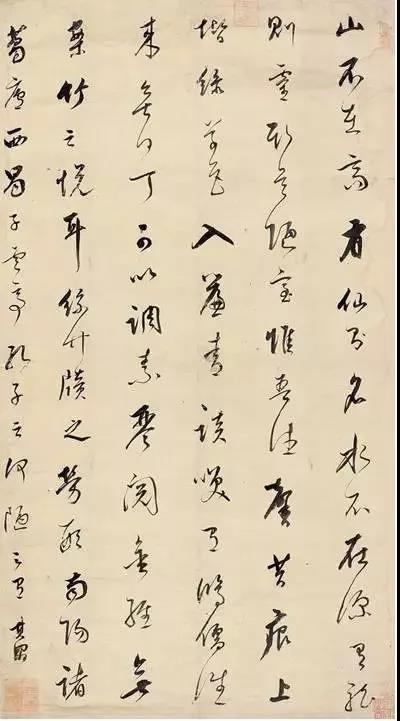 山不在高有仙則名水不在深有龍
則靈斯是陋室惟吾德馨苔痕上
堦綠草色入簾青談笑有鴻儒往
來無白丁可以調素琴閱金經無
竹之悅耳絲竹牘之勞形南陽諸
葛廬西蜀子雲亭孔子云何陋之有 其昌